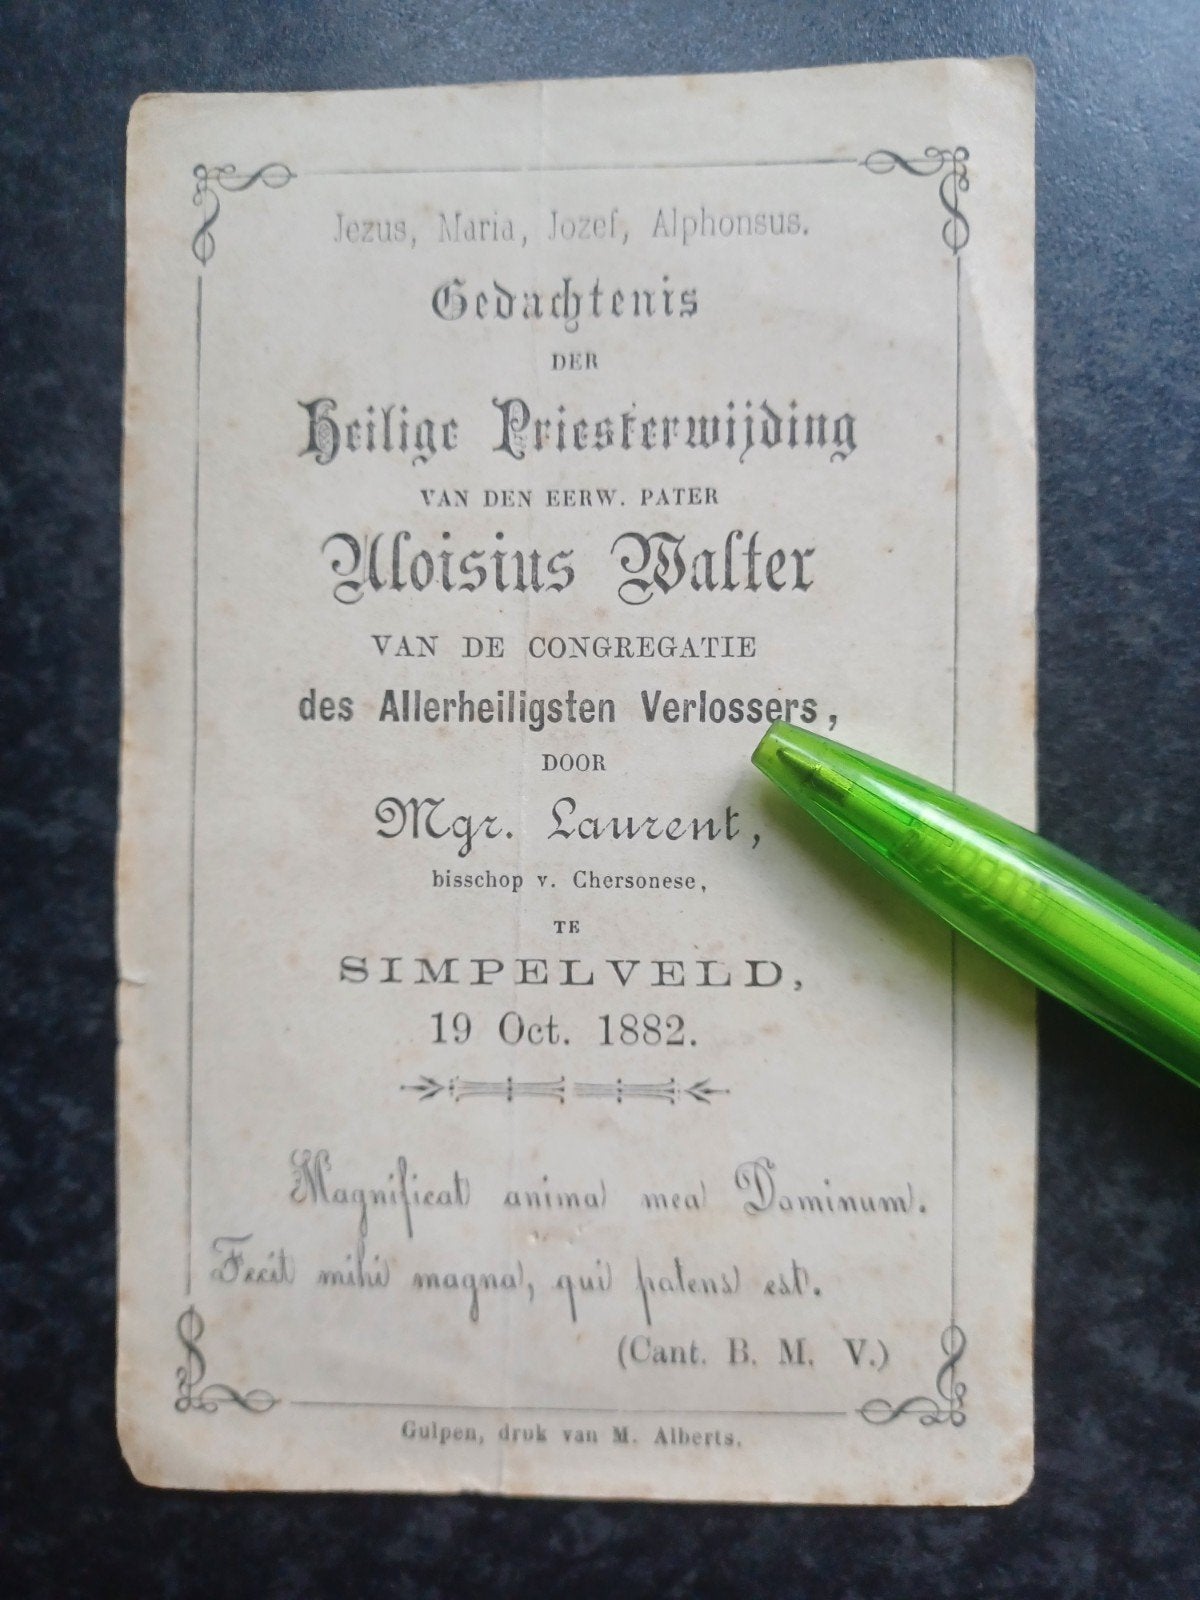 Jezus, Maria, Jozef, Alphonsus.
Gedachtenis
DER
Heilige Priesterwijding
VAN DEN EERW. PATER
Aloisius Walter
VAN DE CONGREGATIE
des Allerheiligsten Verlossers,
DOOR
Mgr. Laurent,
bisschop v. Chersonese,
TE
SIMPELVELD,
19 Oct. 1882.
Magnificat anima mea Dominum.
Fecit mihi magna, qui potens est.
(Cant. B. M. V.)
Gulpen, druk van M. Alberts.